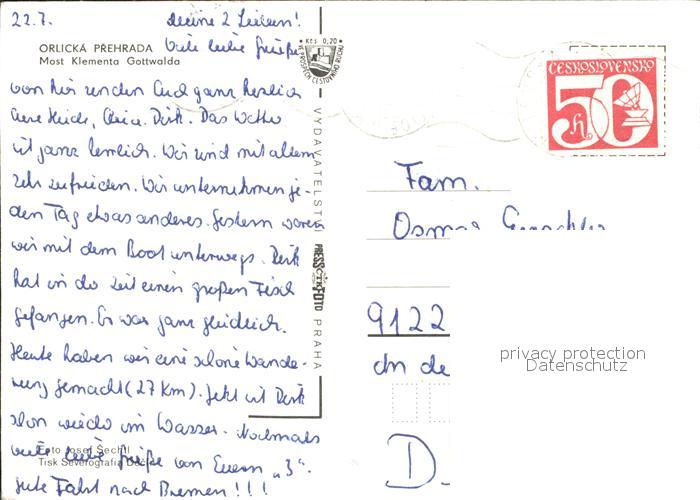 22.7.
Meine 2 Lieben!
ORLICKÁ PŘEHRADA
Most Klementa Gottwalda
Viele liebe Grüße
von hier senden Euch ganz herzlich
Eure Heidi, Dirk. Das Wetter
ist ganz herrlich. Wir sind mit allem
sehr zufrieden. Wir unternehmen je-
den Tag etwas anderes. Gestern waren
wir mit dem Boot unterwegs. Dirk
hat in der Zeit einen großen Fisch
gefangen. Er war ganz glücklich.
Heute haben wir eine schöne Wande-
rung gemacht (27 km). Jetzt ist Dirk
schon wieder im Wasser. Nochmals
viele liebe Grüße von Euern „3“.
Gute Fahrt nach Bremen!!!
Foto Josef Sechtl
Tisk Severografia Děčín
Kčs 0,20
VE PROSPĚCH CESTOVNÍHO RUCHU
VYDAVATELSTVÍ
PRESSFOTO
PRAHA
ČESKOSLOVENSKO
50
h
Fam.
9122
An de
D.
privacy protection
Datenschutz